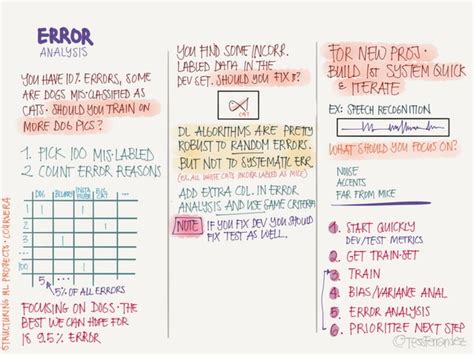 ERROR
ANALYSIS
YOU HAVE 10% ERRORS, SOME
ARE DOGS MIS-CLASSIFIED AS
CATS. SHOULD YOU TRAIN ON
MORE DOG PICS?
1 PICK 100 MIS-LABLED
2 COUNT ERROR REASONS
DOG
BLURRY
INSTA
FILTER
BIG
CAT
1
2
3
4
5
5
5% OF ALL ERRORS
FOCUSING ON DOGS. THE
BEST WE CAN HOPE FOR
IS 9.5% ERROR
STRUCTURING ML PROJECTS · COURSERA
YOU FIND SOME INCORR.
LABLED DATA IN THE
DEV SET. SHOULD YOU FIX IT?
CAT
DL ALGORITHMS ARE PRETTY
ROBUST TO RANDOM ERRORS.
BUT NOT TO SYSTEMATIC ERR
(EX. ALL WHITE CATS INCORR LABLED AS MICE)
ADD EXTRA COL. IN ERROR
ANALYSIS AND USE SAME CRITERIA
NOTE
IF YOU FIX DEV YOU SHOULD
FIX TEST AS WELL.
FOR NEW PROJ.
BUILD 1st SYSTEM QUICK
& ITERATE
EX: SPEECH RECOGNITION
WHAT SHOULD YOU FOCUS ON?
NOISE
ACCENTS
FAR FROM MICE
1 START QUICKLY
DEV/TEST METRICS
2 GET TRAIN-SET
3 TRAIN
4 BIAS/VARIANCE ANAL
5 ERROR ANALYSIS
6 PRIORITIZE NEXT STEP
©TessFerrandez